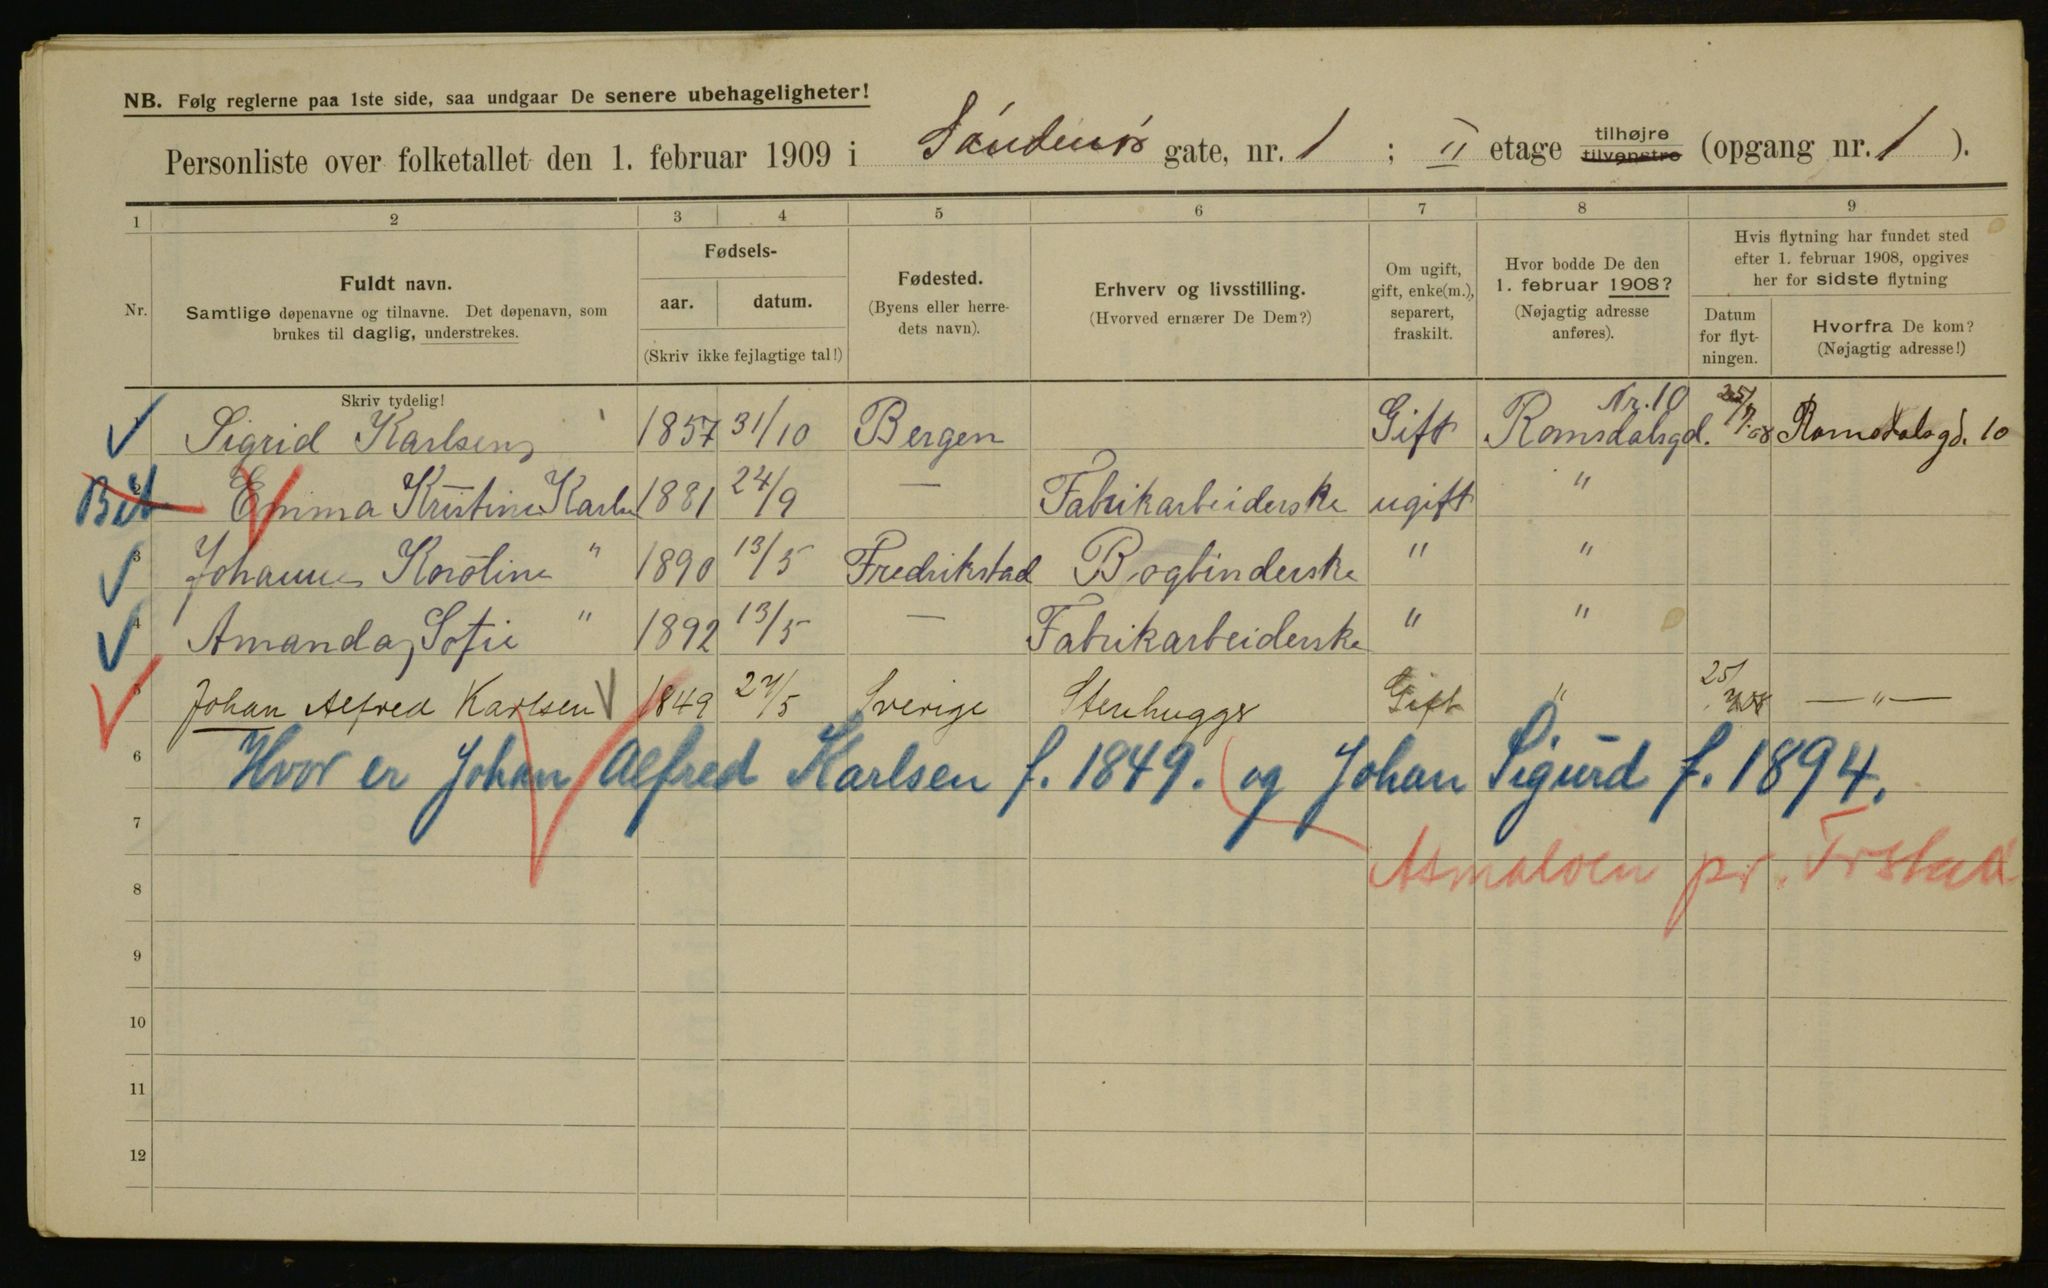 NB. Følg reglerne paa 1ste side, saa undgaar De senere ubehageligheter!
Personliste over folketallet den 1. februar 1909 i Søndenørs gate, nr. 1 ; II etage tilhøjre tilvenstre (opgang nr. 1 ).
1 2 3 4 5 6 7 8 9
Nr.
Fuldt navn.
Samtlige døpenavne og tilnavne. Det døpenavn, som
brukes til daglig, understrekes.
Fødsels-
aar. datum.
(Skriv ikke fejlagtige tal!)
Fødested.
(Byens eller herre-
dets navn).
Erhverv og livsstilling.
(Hvorved ernærer De Dem?)
Om ugift,
gift, enke(m.),
separert,
fraskilt.
Hvor bodde De den
1. februar 1908?
(Nøjagtig adresse
anføres).
Hvis flytning har fundet sted
efter 1. februar 1908, opgives
her for sidste flytning
Datum
for flyt-
ningen.
Hvorfra De kom?
(Nøjagtig adresse!)
Skriv tydelig!
Sigrid Karlsen 1857 31/10 Bergen Gift Romsdalsgd. Nr. 10 25/7.08 Romsdalsgd. 10
2 Emma Kristine Karlsen 1881 24/9 — Fabrikarbeiderske ugift "
3 Johanne Karoline " 1890 13/5 Fredrikstad Bogbinderske " "
4 Amanda Sofie " 1892 13/5 — Fabrikarbeiderske " "
5 Johan Alfred Karlsen 1849 27/5 Sverige Stenhugger Gift " 25/7 08 — " —
6 Hvor er Johan Alfred Karlsen f. 1849. og Johan Sigurd f. 1894.
7
Asmaloen pr. Frstad
8
9
10
11
12